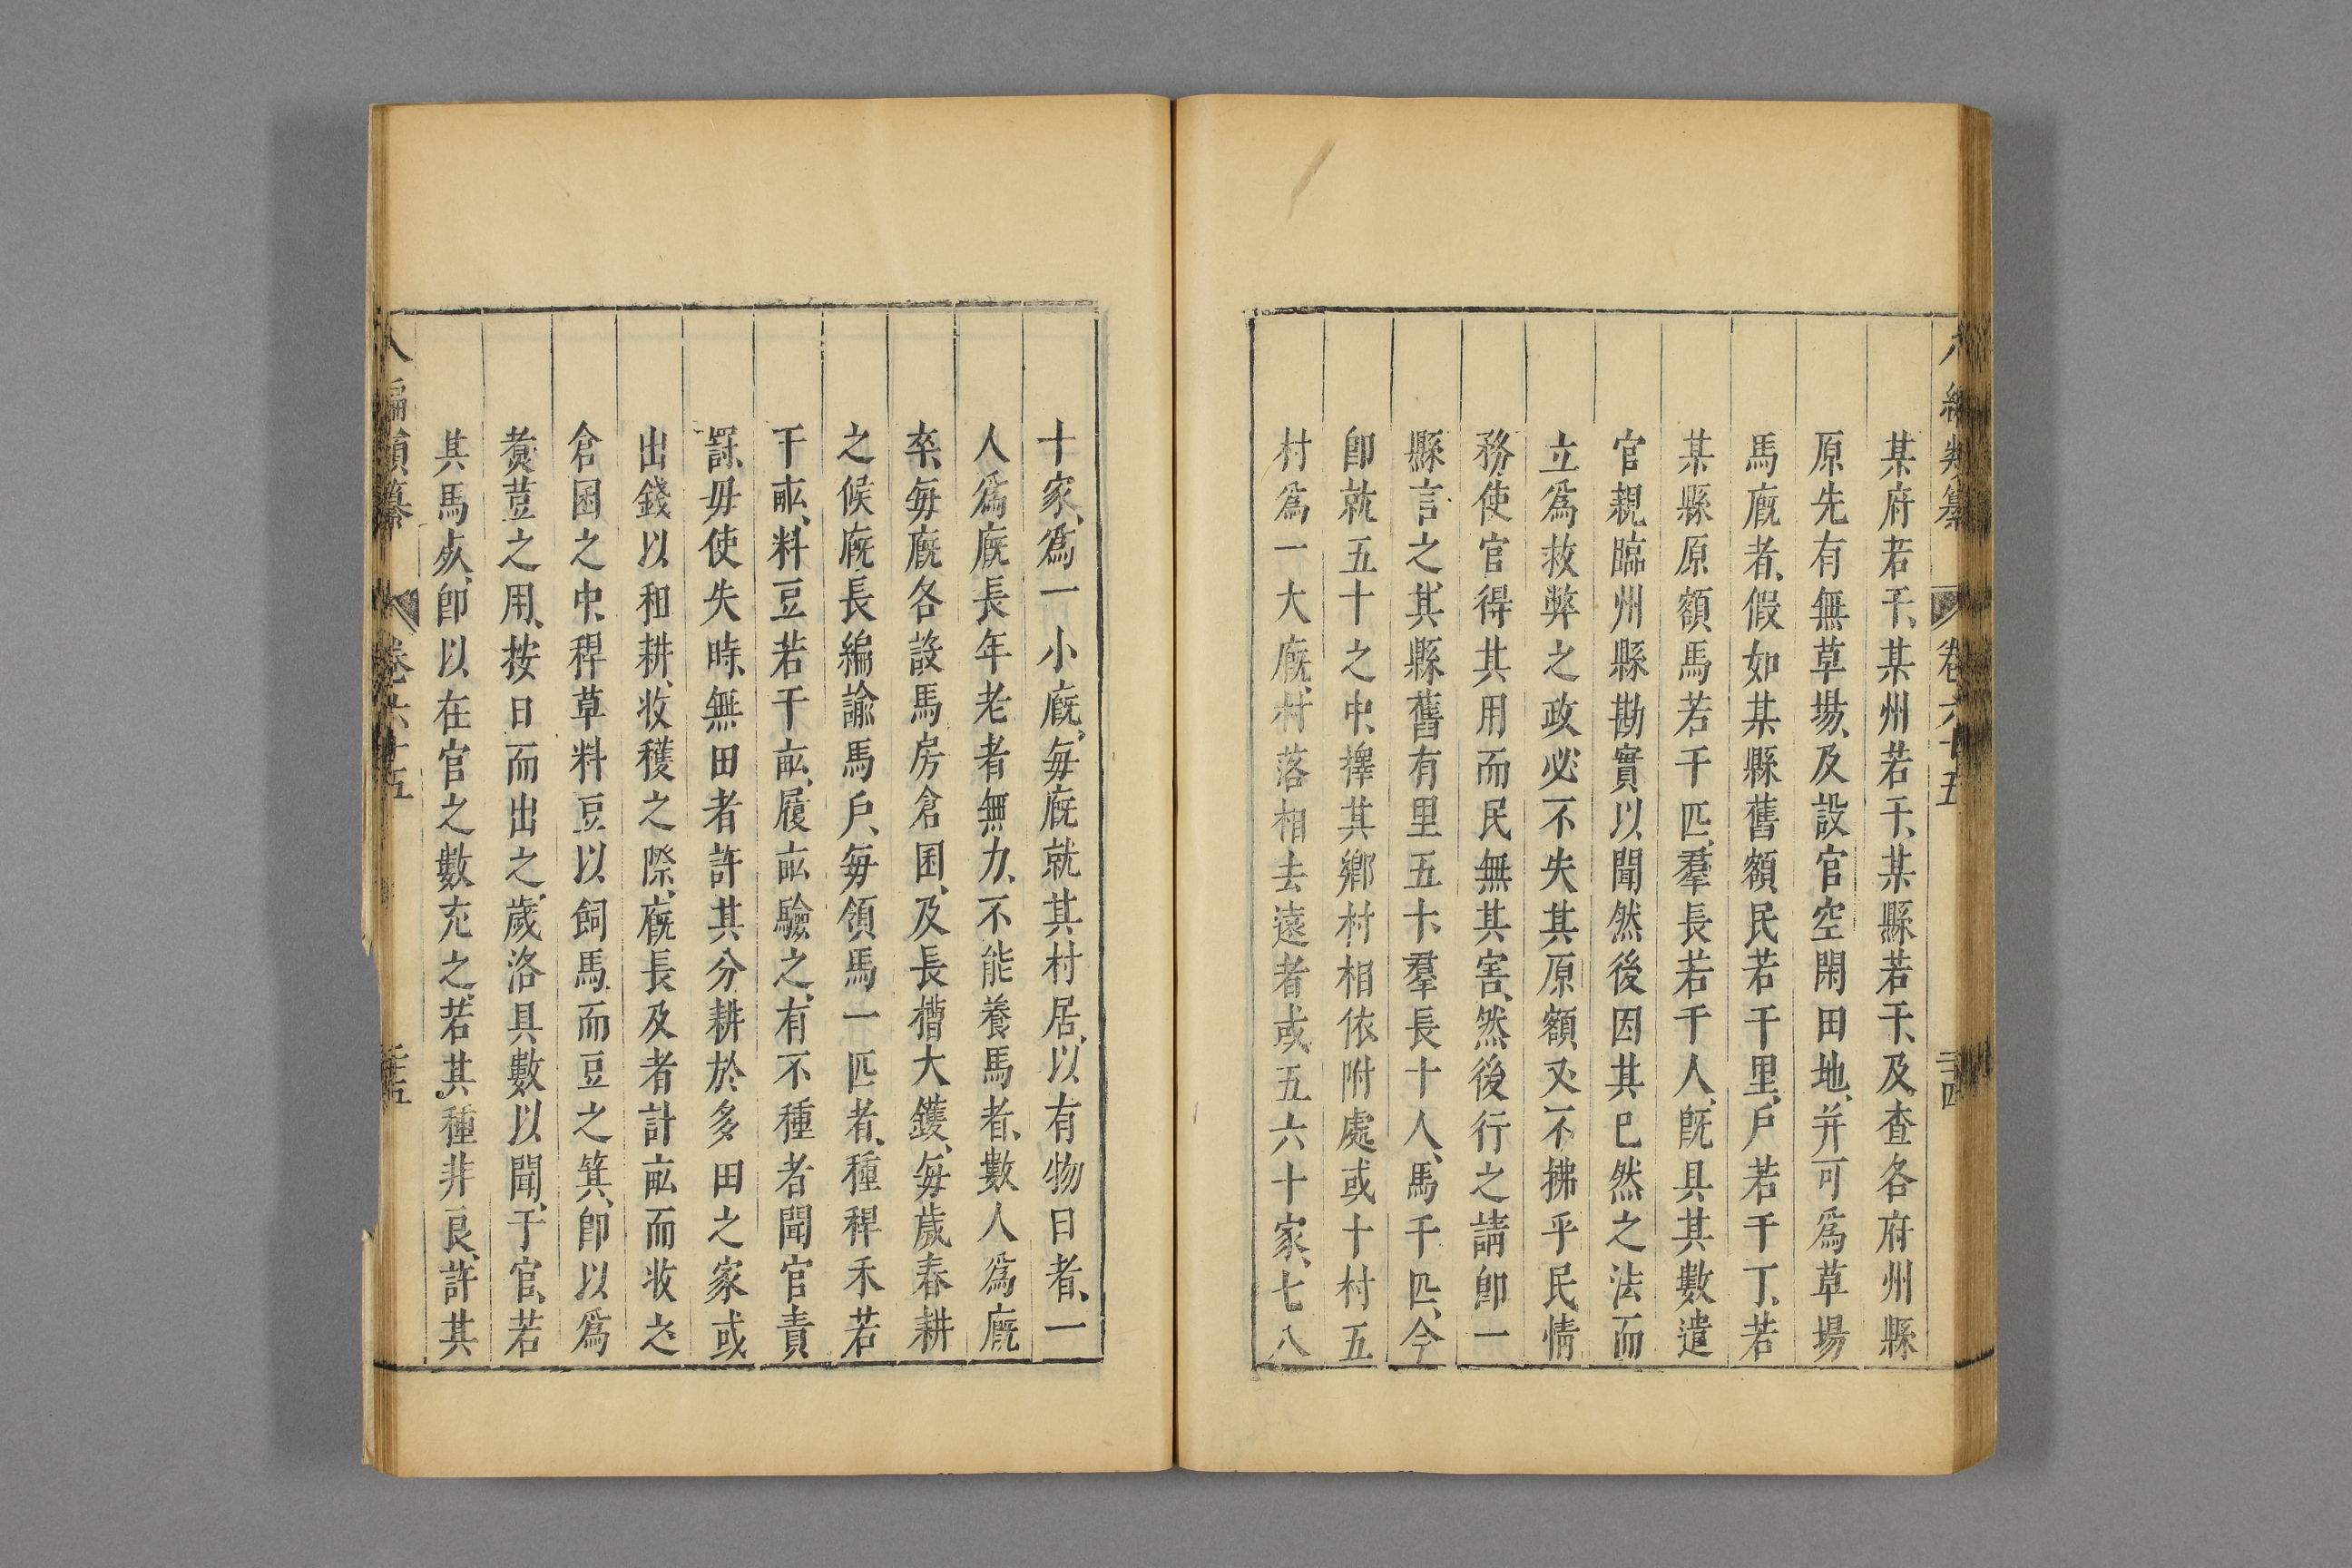 編類纂 卷六十五 二十四
某府若干、某州若干、某縣若干、及查各府州縣
原先有無草場、及設官空閑田地、并可爲草場
馬廐者、假如某縣舊額民若干里、戶若干丁、若
某縣原額馬若干匹、羣長若干人、旣具其數遣
官親臨州縣勘實以聞然後因其已然之法而
立爲救弊之政必不失其原額又不拂乎民情
務使官得其用而民無其害、然後行之請卽一
縣言之、其縣舊有里五十、羣長十人、馬千匹、今
卽就五十之中、擇其鄉村相依附處或十村五
村爲一大廐、村落相去遠者或五六十家、七八
十家、爲一小廐、每廐就其村居、以有物曰者、一
人爲廐長年老者無力、不能養馬者、數人爲廐
卒、每廐各設馬房倉囷、及長槽大鑊、每歲春耕
之候廐長編諭馬戶、每領馬一匹者、種稈禾若
干畝、料豆若干畝、履畝驗之、有不種者聞官責
罰、毋使失時、無田者許其分耕於多田之家或
出錢以和耕、收穫之際、廐長及者計畝而收之
倉囷之中、稈草料豆以飼馬、而豆之箕、卽以爲
煑荳之用、按日而出之、歲洛具數以聞、于官、若
其馬死、卽以在官之數充之、若其種非良、許其
八編類纂 卷六十五 二十五